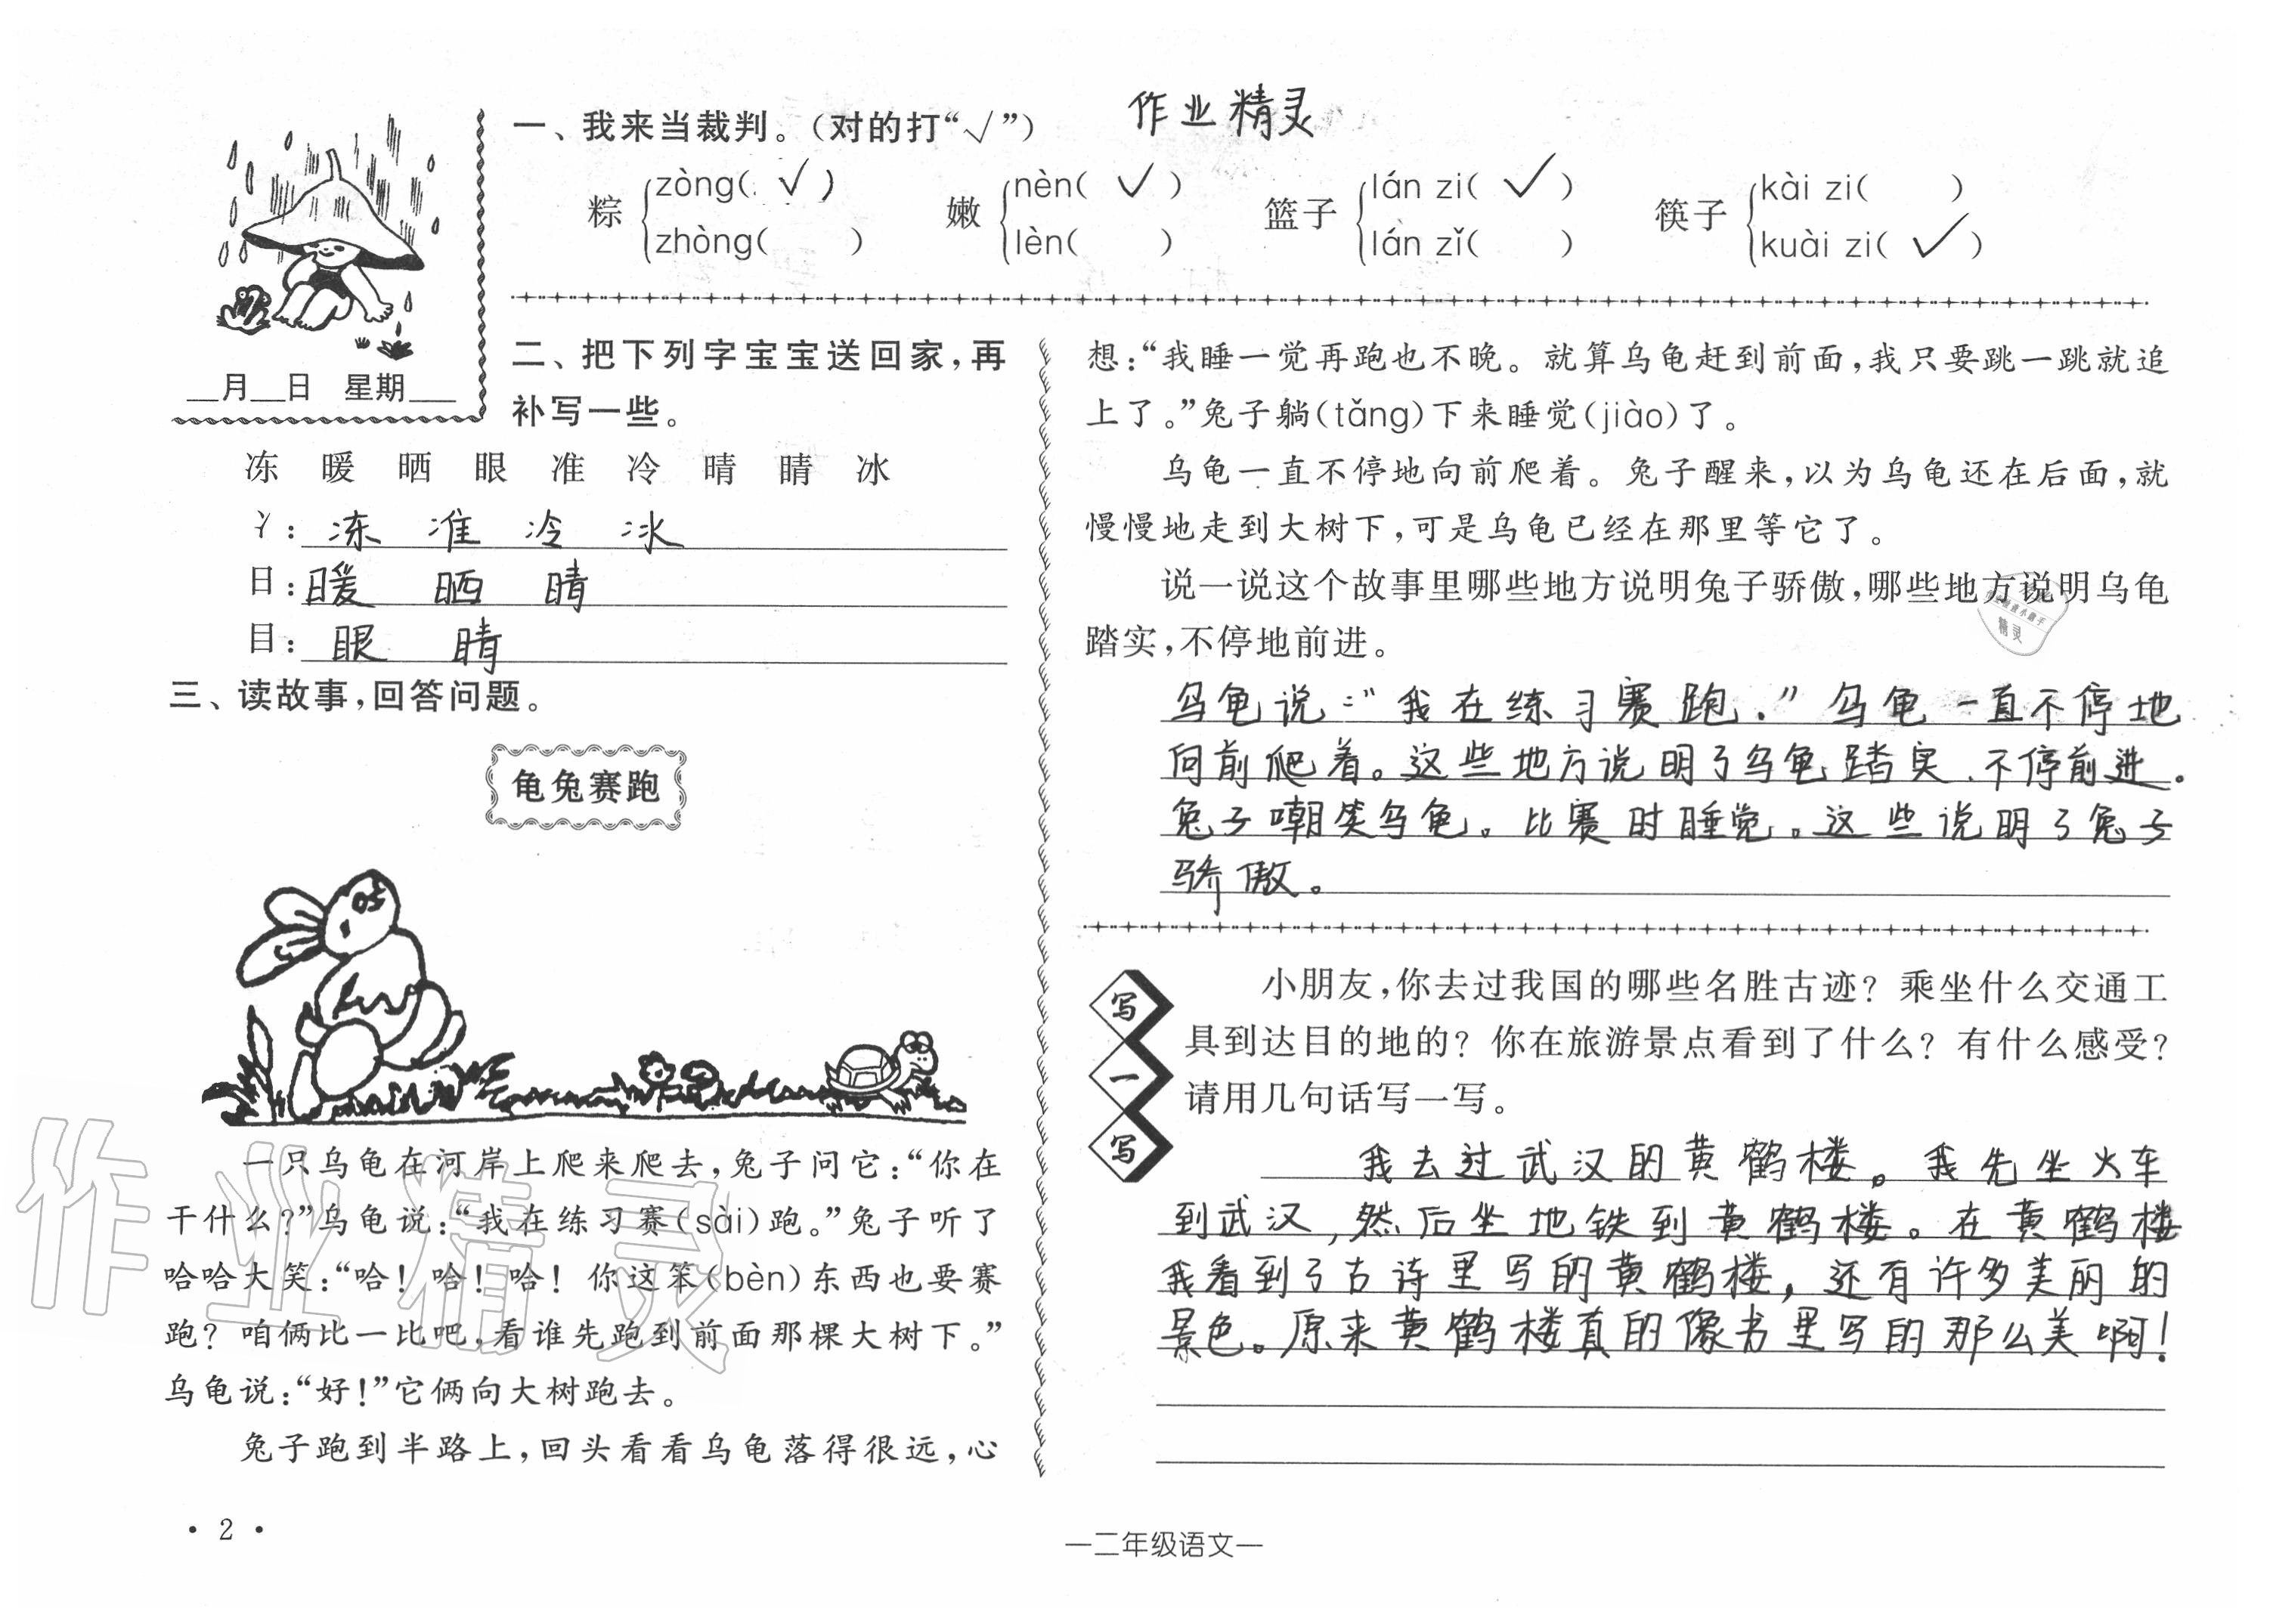 一、我来当裁判。（对的打“√”） 作业精灵
粽 zòng( √ ) 嫩 nèn( √ ) 篮子 lán zi( √ ) 筷子 kài zi( )
zhòng( ) lèn( ) lán zǐ( ) kuài zi( √ )
__月__日 星期___
二、把下列字宝宝送回家，再
补写一些。
冻 暖 晒 眼 准 冷 晴 睛 冰
冫：冻 准 冷 冰
日：暖 晒 晴
目：眼 睛
三、读故事，回答问题。
龟兔赛跑
一只乌龟在河岸上爬来爬去，兔子问它：“你在
干什么？”乌龟说：“我在练习赛（sài）跑。”兔子听了
哈哈大笑：“哈！哈！哈！你这笨（bèn）东西也要赛
跑？咱俩比一比吧，看谁先跑到前面那棵大树下。”
乌龟说：“好！”它俩向大树跑去。
兔子跑到半路上，回头看看乌龟落得很远，心
想：“我睡一觉再跑也不晚。就算乌龟赶到前面，我只要跳一跳就追
上了。”兔子躺（tǎng）下来睡觉（jiào）了。
乌龟一直不停地向前爬着。兔子醒来，以为乌龟还在后面，就
慢慢地走到大树下，可是乌龟已经在那里等它了。
说一说这个故事里哪些地方说明兔子骄傲，哪些地方说明乌龟
踏实，不停地前进。
乌龟说：“我在练习赛跑.”乌龟一直不停地
向前爬着。这些地方说明了乌龟踏实、不停前进。
兔子嘲笑乌龟。比赛时睡觉。这些说明了兔子
骄傲。
写一写
小朋友，你去过我国的哪些名胜古迹？乘坐什么交通工
具到达目的地的？你在旅游景点看到了什么？有什么感受？
请用几句话写一写。
我去过武汉的黄鹤楼。我先坐火车
到武汉，然后坐地铁到黄鹤楼。在黄鹤楼
我看到了古诗里写的黄鹤楼，还有许多美丽的
景色。原来黄鹤楼真的像书里写的那么美啊！
作业精灵
·2·
—二年级语文—